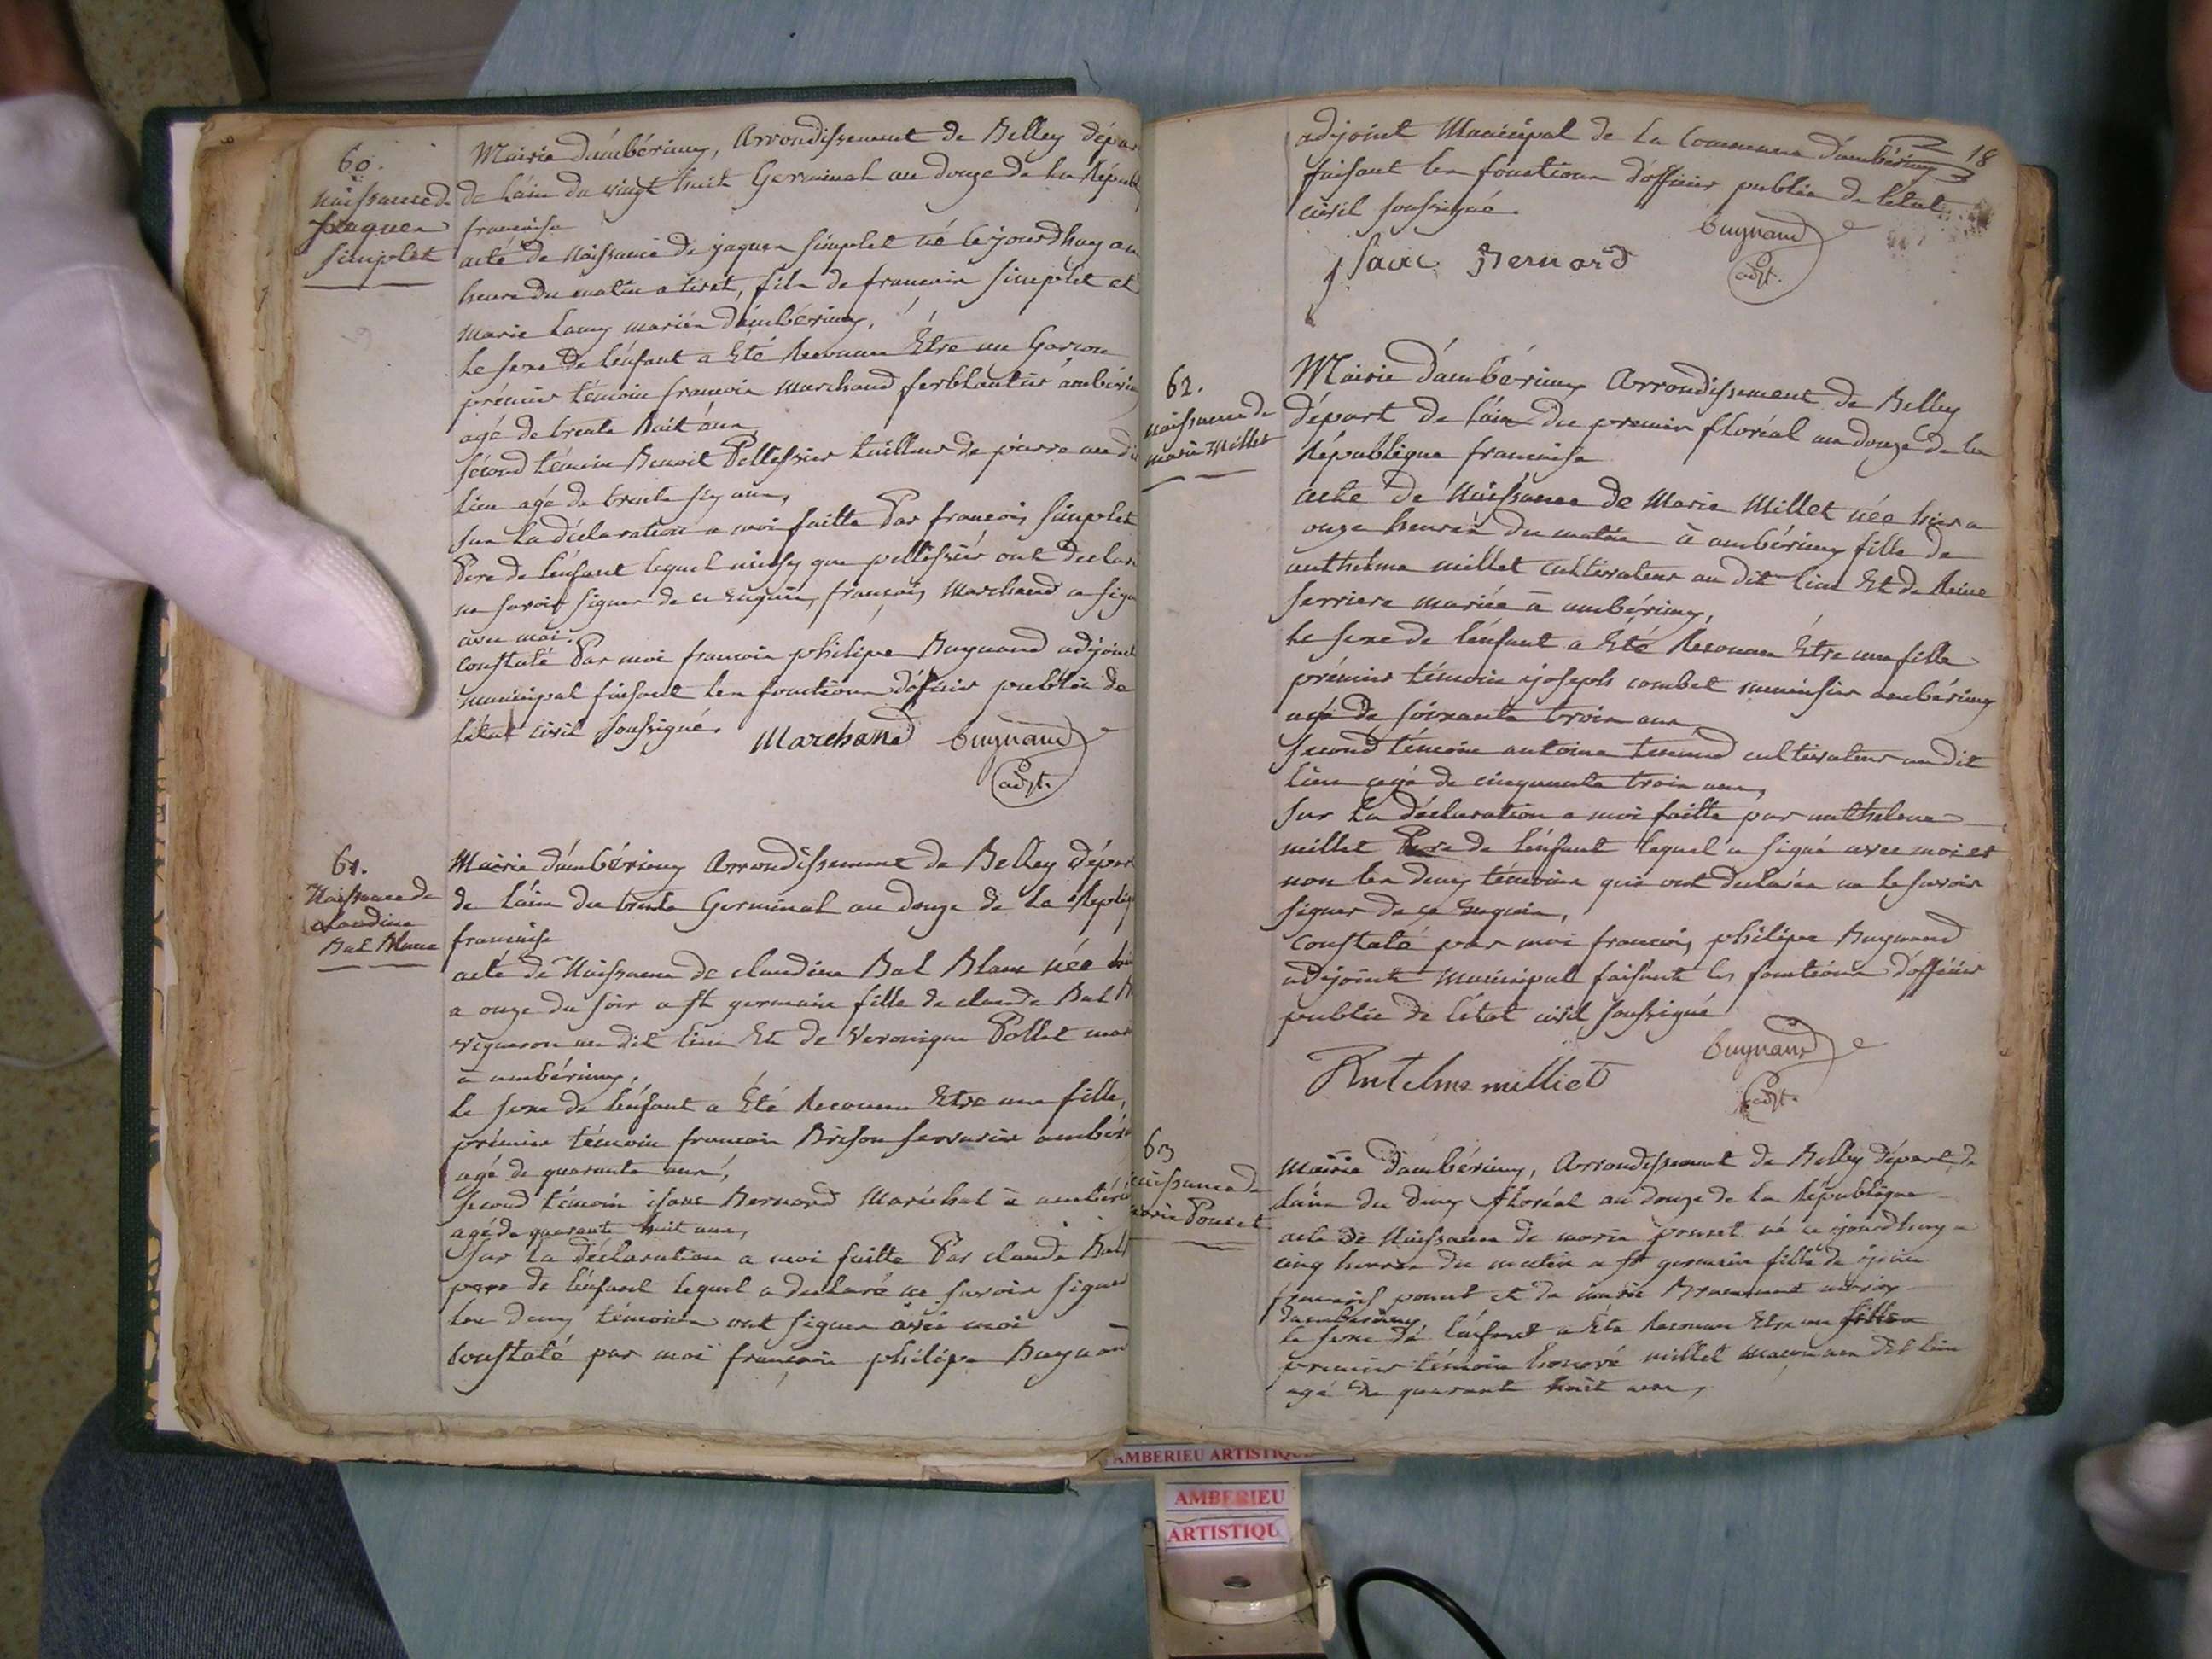 60.
naissance de
Jaques
simplet
Mairie d'ambérieux, Arrondissement de Belley dépar
de l'ain du vingt huit Germinal an douze de la Répub
francaise
acte de Naissance de jaques simplet né cejourdhuy
heure du matin a tiret, fils de francois simplet et
Marie Lamy mariés d'ambérieux,
le sexe de l'enfant a Eté Reconnu Etre un Garcon
prémier témoin francois marchand ferblantier ambérie
agé de trente huit ans,
sécond témoin Benoit Pellessier tailleur de pierre au di
lieu agé de trente six ans,
sur la déclaration a moi faitte Par francois simplet
Pere de l'enfant lequel ainsy que pellessier ont declar
ne savoir signer de ce Enquis, francois Marchand a sign
avec moi.
constaté Par moi francois philipe Buynand adjoint
municipal faisant les fonctions d'officier public de
l'état civil soussigné.
Marchand Buynand
adjt.
61.
Naissance de
claudine
Bal Blanc
Mairie d'ambérieux Arrondissement de Belley dépar
de l'ain du trente Germinal an douze de la Répliq
francaise
acte de Naissance de claudine Bal Blanc née hier
a onze du soir a st germain fille de claude Bal B
vigneron au dit lieu Et de Veronique Pollet mar
a ambérieux,
le sexe de l'enfant a Eté Reconnu Etre une fille,
prémier témoin francois Brison serrurier ambéri
agé de quarante ans,
second témoin isaac Bernard Maréchal a ambéri
agé de quarante huit ans,
sur la déclaration a moi faitte Par claude Bal
pere de l'enfant lequel a declaré ne savoir signer
les deux témoins ont signer avec moi
Constaté par moi francois philipe Buynan
18
adjoint Municipal de la Commune d'ambérieux
faisant les fonctions d'officier public de l'état
civil soussigné.
Buynand
adjt.
isaac Bernard
62.
naissance de
marie Millet
Mairie d'ambérieux Arrondissement de Belley
départ de l'ain du premier floréal an douze de la
République francaise
acte de Naissance de Marie Millet née hier a
onze heures du matin à ambérieux fille de
anthelme millet cultivateur au dit lieu Et de Reine
ferriere mariés à ambérieux,
le sexe de l'enfant a Eté Reconnu Etre une fille
prémier témoin joseph combet ambérieux
agé de soixante trois ans,
second témoin antoine tenand cultivateur au dit
lieu agé de cinquante trois ans,
sur la déclaration a moi faitte par anthelme
millet Pere de l'enfant lequel a signé avec moi et
non les deux témoins qui ont declarés ne le savoir
signer de ce Enquis,
constaté par moi francois philipe Buynand
adjoint municipal faisant les fonctions d'officier
public de l'état civil soussigné
Buynand
adjt.
Antelme milliet
63
naissance de
marie Poncet
mairie d'ambérieux, Arrondissement de Belley départ. de
l'ain du deux floréal an douze de la République
acte de Naissance de marie poncet né ce jourdhuy a
cinq heures du matin a st germain fille de
francois poncet et de marie mariés
d'ambérieux
le sexe de l'enfant a Eté Reconnu Etre une fille
premier témoin honoré millet macon au dit lieu
agé de quarante huit ans,
AMBERIEU ARTISTIQU
AMBERIEU
ARTISTIQU